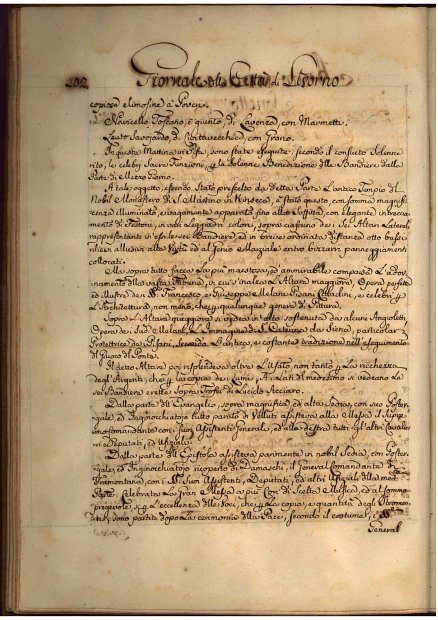 202 Giornale della Città di Livorno
copiose elimosine à Poveri.
Navicello Toscano, è giunto di Lavenza, con Marmetti.
Leuto Savojardo, di Civitavecchia, con Grano.
In questa Mattina in Pisa, sono state eseguite, secondo il consueto solenne
rito, le celebri Sacre Funzioni, e la solenne Benedizione delle Bandiere dalla
Parte di Mezzo Giorno.
A tale oggetto, essendo stato prescelto da detta Parte l'antico Tempio del
Nobil Monastero di S. Martino in Kinseca, è stato questo, con somma magnifi-
cenza illuminato, e vagamente apparato fino alla Soffitta, con elegante intreccia-
mento di Festoni, in varj leggiadri colori, sopra ciascuno dei sei Altari Laterali
rappresentanti
allusivi alla ed al Genio Marziale entro bizzarri panneggiamenti
collocati.
Ma sopra tutto facea la più maestosa, ed ammirabile comparsa l'ador-
namento della vasta Tribuna, in cui s'inalza l'Altare maggiore, Opera perfetta
ed illustre dei Francesco, e Giuseppe Melani Pisani Cittadini, e celebri
L'Architettura non meno, che qualunque genere di Pittura.
Sopra L'Altare maggiore si vedeva in alto sostenuta da alcuni Angioletti,
Opera dei sud. Melani, L'Immagine di S. Caterina da Siena, particolar
Protettrice de Pisani, secondo L'antica, e costante tradizione nell'eseguimento
del Giuoco del Ponte.
Il detto Altare poi risplendeva oltre L'Usato, non tanto la ricchezza
degli Argenti, che la copia dei Lumi. Ai Lati del medesimo si vedeano Le
sei Bandiere erette sopra Trofei di lucido Acciaro.
Dalla parte dell'Evangelo, sopra magnifica, ed alta Sedia, con suo Poster-
gale, ed Inginocchiatojo tutto parato di Velluti assisteva alla Messa il Supre-
mo Comandante con i suoi Assistenti Generali, ed alla destra tutti gli altri Cavalie-
ri Deputati, ed Ufiziali.
Dalla parte dell'Epistola assisteva parimente in nobil Sedia, con Poster-
gale, ed Inginocchiatojo ricoperto di Damaschi, il General Comandante di
Tramontana, con i Suoi Assistenti, Deputati, ed altri Ufiziali della med.
Parte.
Celebrata La Gran Messa a più Cori di Scelta Musica, ed al sommo
pregevole, L'eccellenza delle Voci, che La copia, e quantità degli Strumen-
ti, sono partite dopo La cerimonia della Pace, secondo il costume,
General